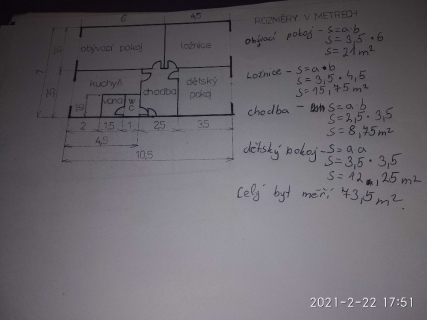 6 4,5
ROZMĚRY V METRECH
obývací pokoj
ložnice
kuchyň
dětský pokoj
chodba
vana
WC
2 1,5 1 2,5 3,5
4,5
10,5
obývací pokoj - S = a·b
S = 3,5 · 6
S = 21 m²
Ložnice - S = a · b
S = 3,5 · 4,5
S = 15,75 m²
chodba - S = a·b
S = 2,5 · 3,5
S = 8,75 m²
dětský pokoj - S = a·a
S = 3,5 · 3,5
S = 12,25 m²
Celý byt měří 73,5 m².
2021-2-22 17:51